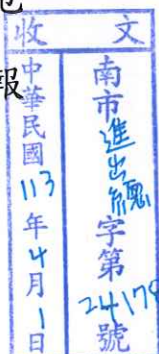 收文
南市進出總字第24179號
中華民國113年4月1日
報